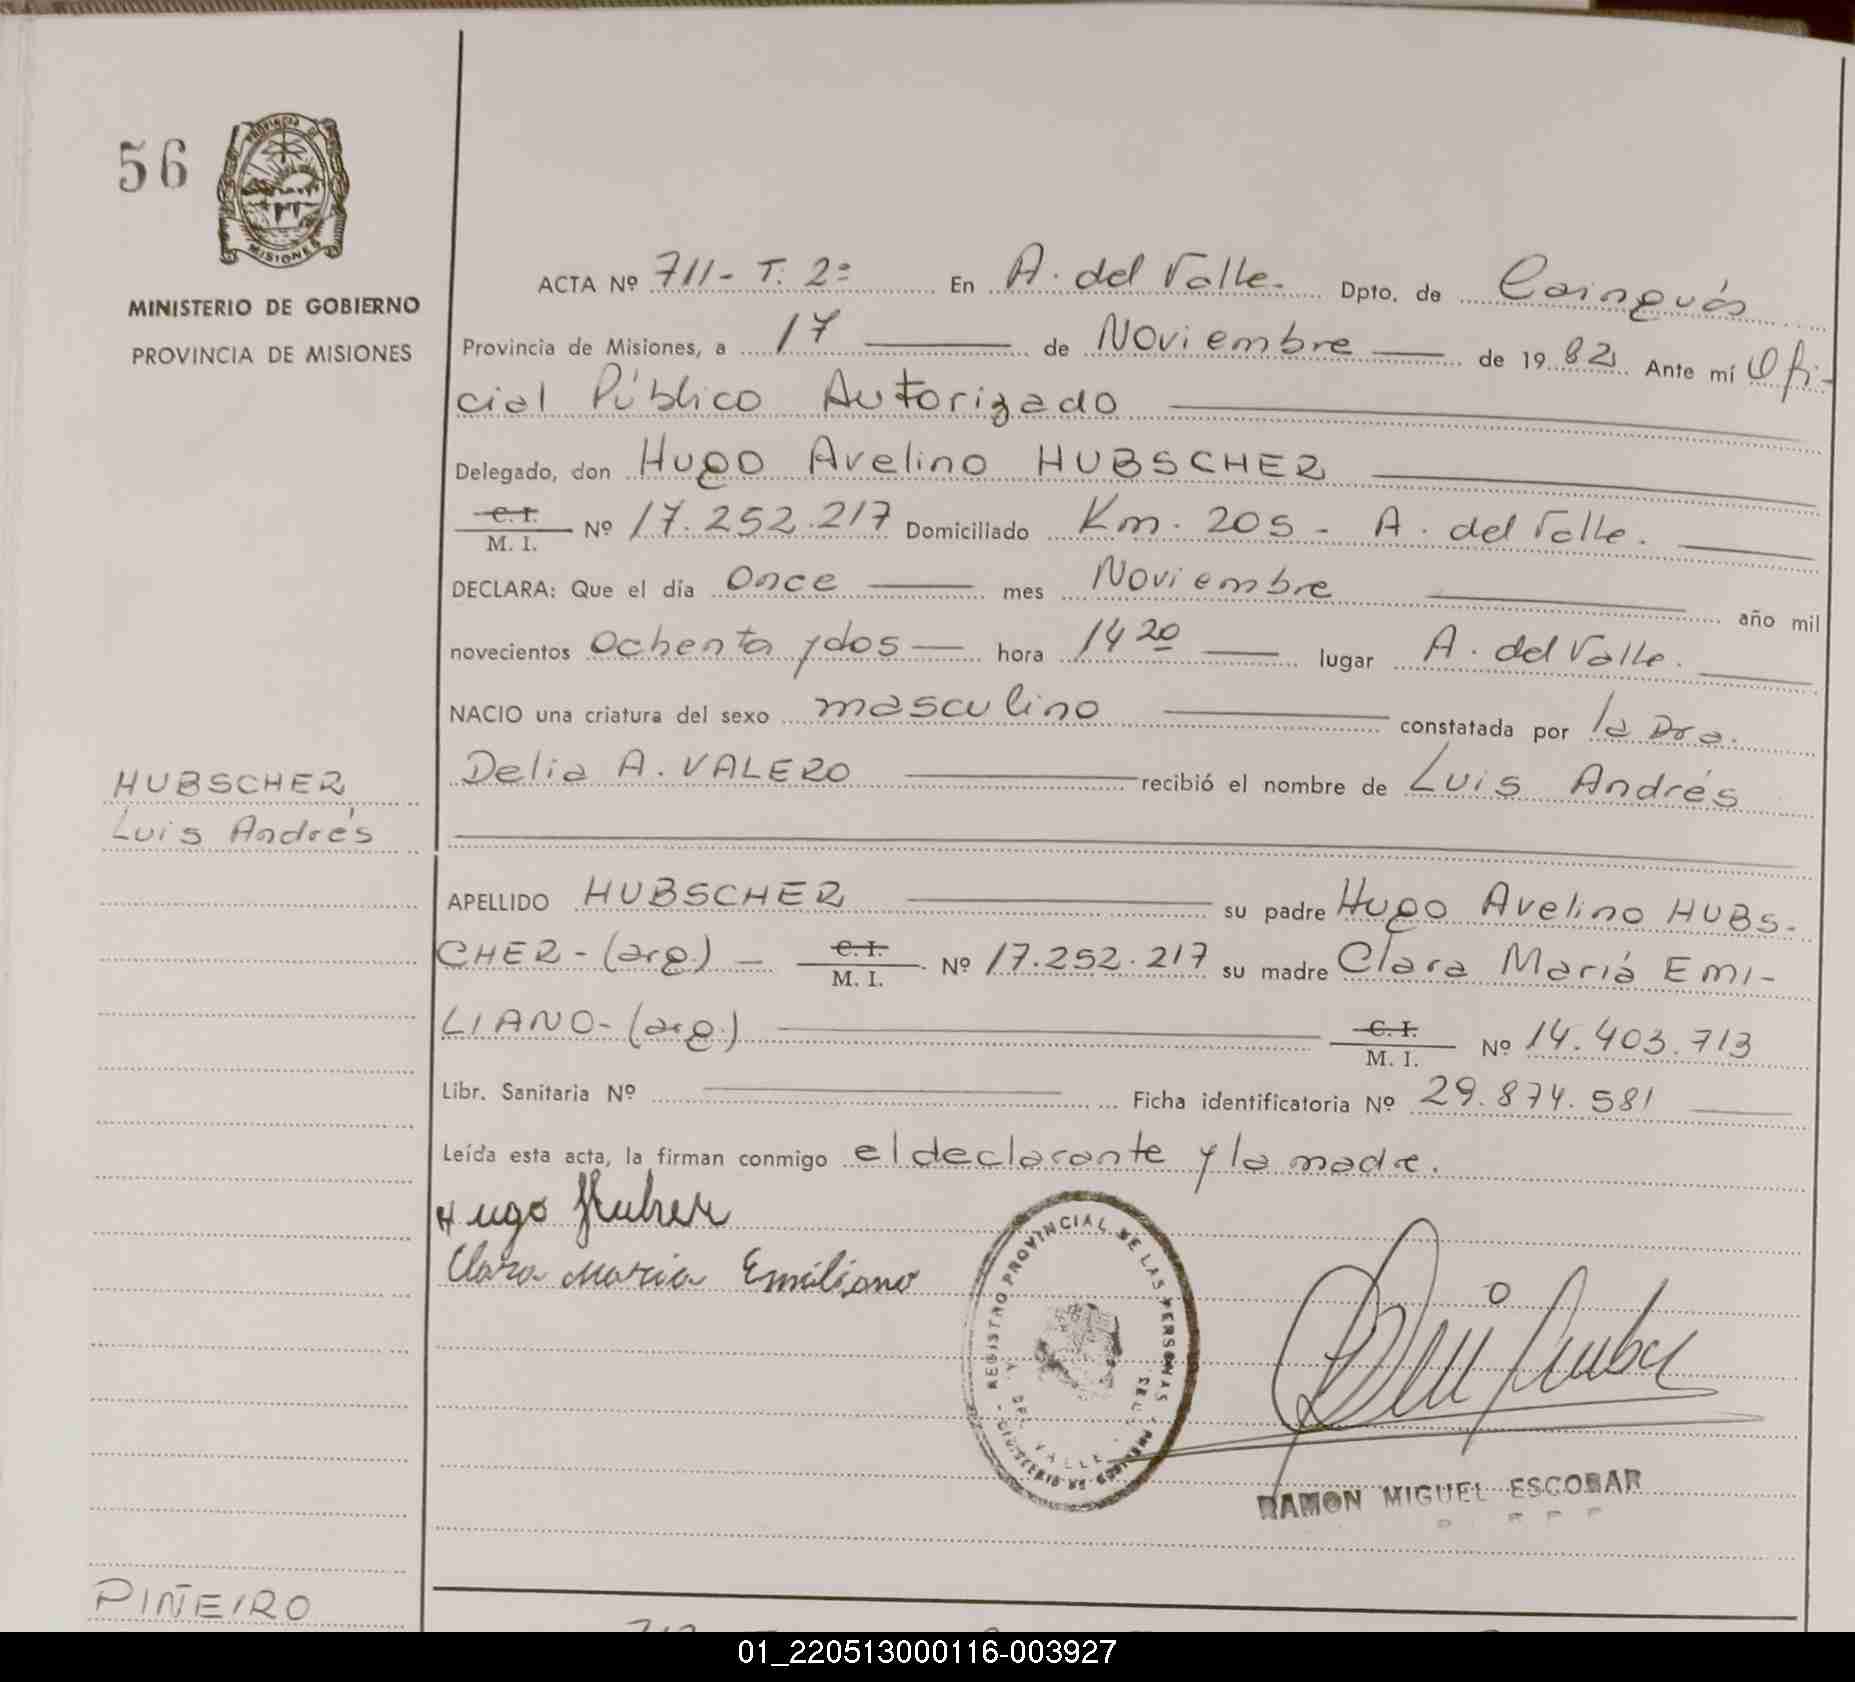 56
PROVINCIA DE
MISIONES
MINISTERIO DE GOBIERNO
PROVINCIA DE MISIONES
ACTA Nº 711- T. 2º En A. del Valle. Dpto. de Cainguás
Provincia de Misiones, a 17 de Noviembre de 1982 Ante mí Ofi-
cial Público Autorizado
Delegado, don Hugo Avelino HUBSCHER
C. I.
M. I. Nº 17.252.217 Domiciliado Km. 205 - A. del Valle.
DECLARA: Que el día Once mes Noviembre año mil
novecientos Ochenta y dos hora 14 20 lugar A. del Valle.
NACIO una criatura del sexo masculino constatada por la Dra.
Delia A. VALERO recibió el nombre de Luis Andrés
HUBSCHER
Luis Andrés
APELLIDO HUBSCHER su padre Hugo Avelino HUBS-
CHER - (arg.) - C. I.
M. I. Nº 17.252.217 su madre Clara María EMI-
LIANO - (arg.) C. I.
M. I. Nº 14.403.713
Libr. Sanitaria Nº Ficha identificatoria Nº 29.874.581
Leída esta acta, la firman conmigo el declarante y la madre.
Hugo
Clara Maria Emiliano
REGISTRO PROVINCIAL DE LAS PERSONAS
DEL VALLE
MINISTERIO DE
RAMON MIGUEL ESCOBAR
PIÑEIRO
01_220513000116-003927